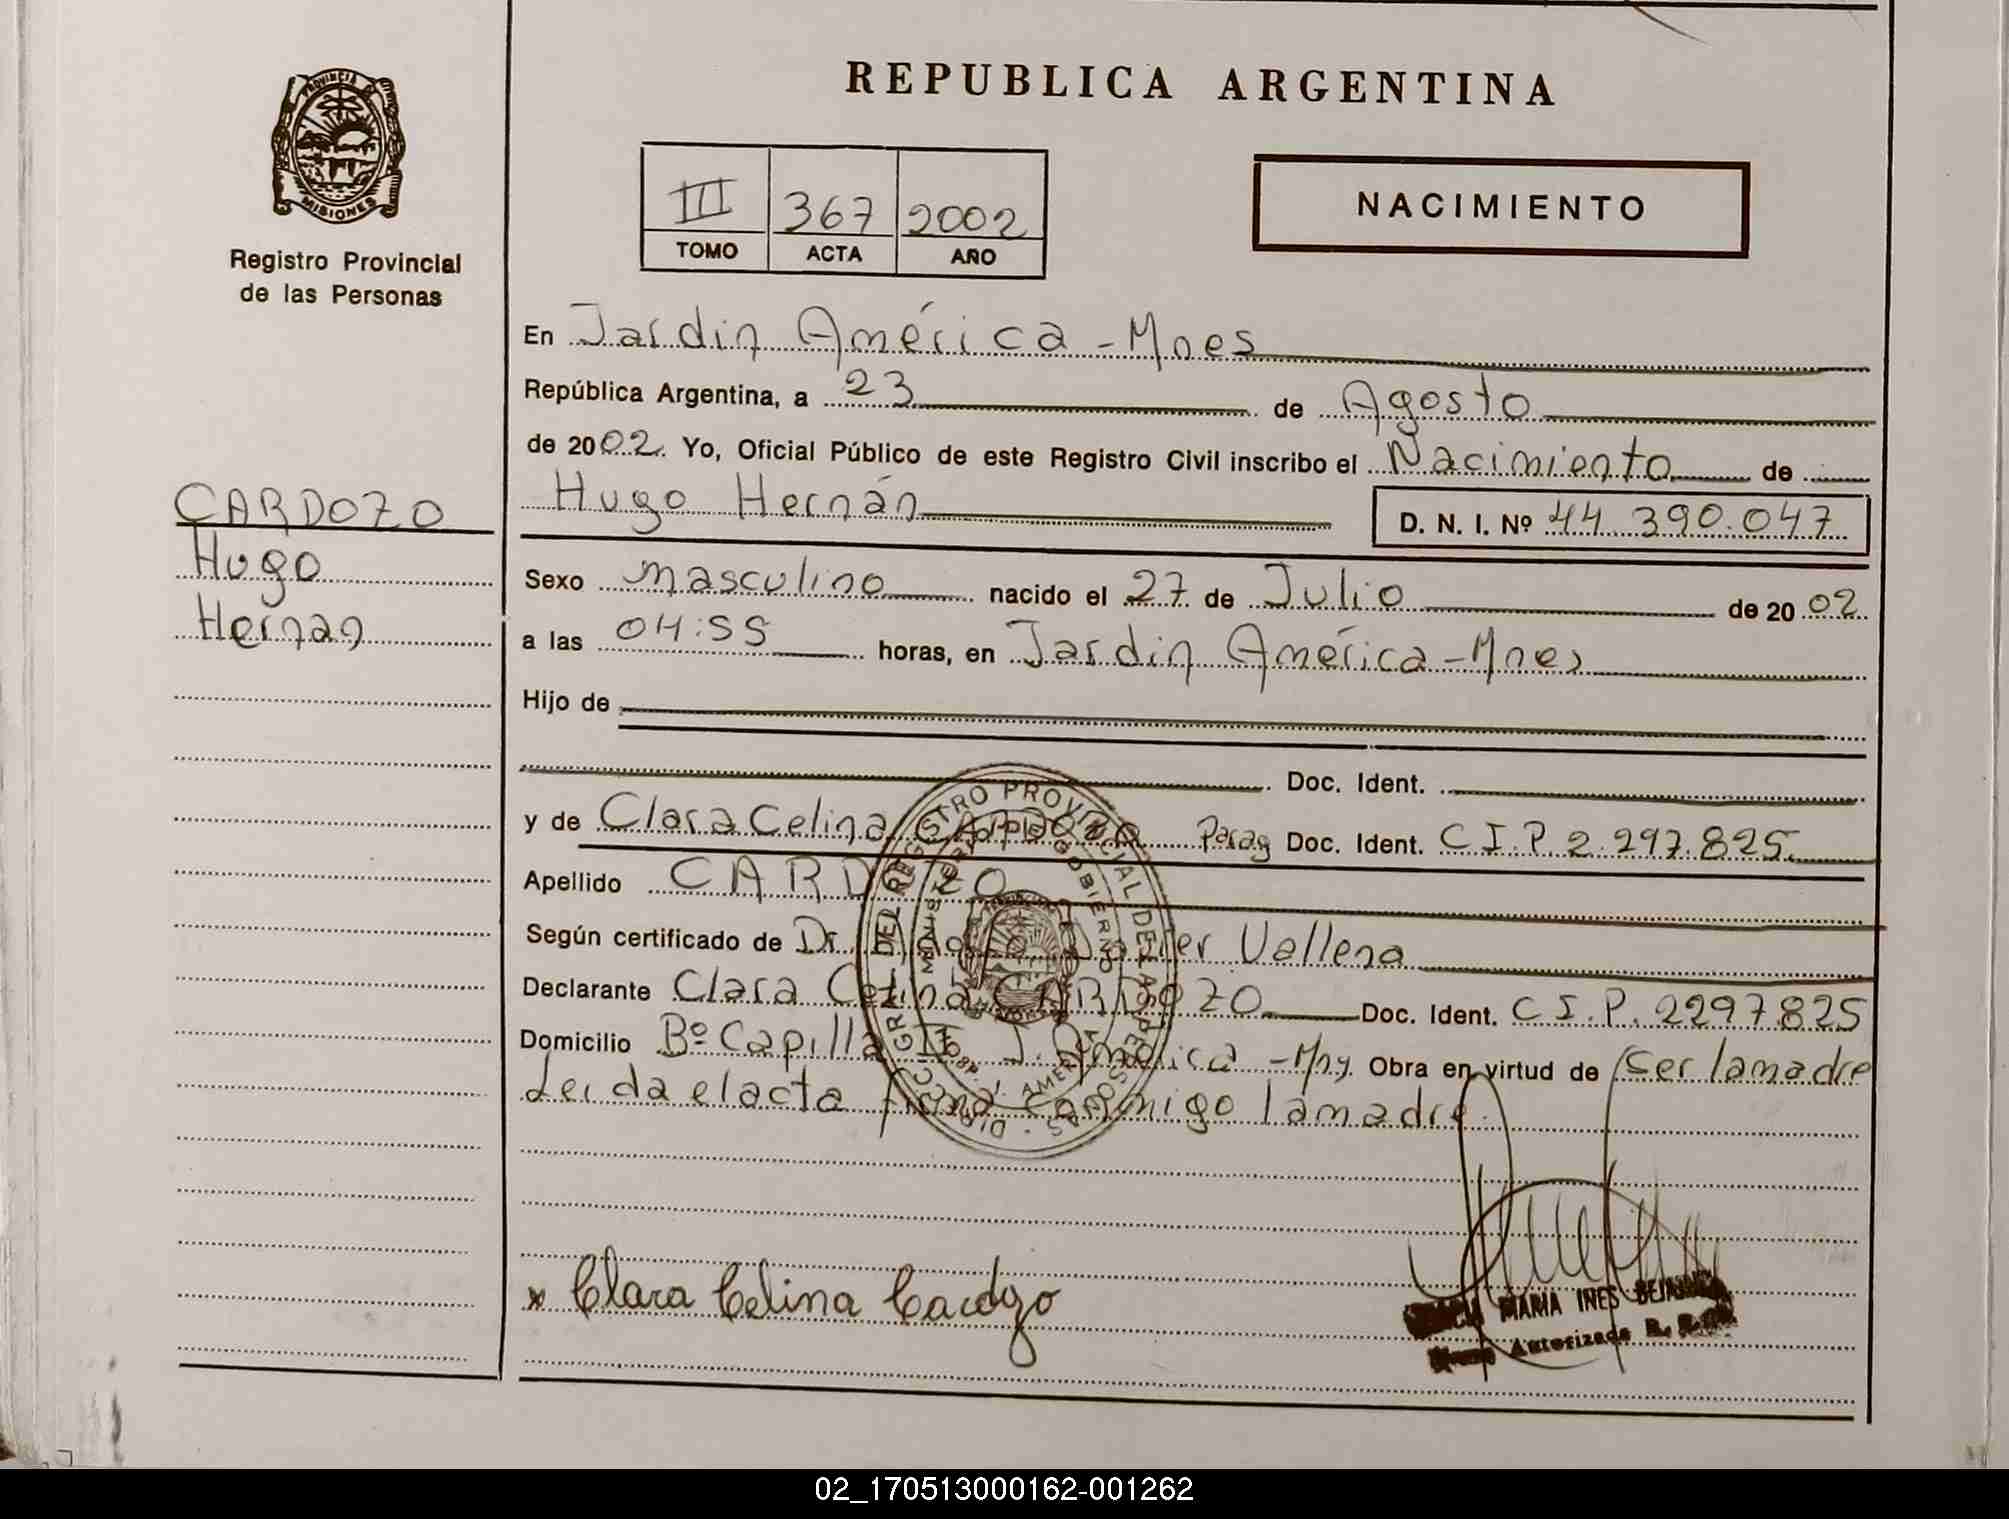 REPUBLICA ARGENTINA
PROVINCIA DE MISIONES
Registro Provincial
de las Personas
III 367 2002
TOMO ACTA AÑO
NACIMIENTO
CARDOZO
Hugo
Hernan
En Jardin América - Mnes
República Argentina, a 23 de Agosto
de 2002. Yo, Oficial Público de este Registro Civil inscribo el Nacimiento de
Hugo Hernán D. N. I. Nº 44.390.047
Sexo masculino nacido el 27 de Julio de 2002
a las 04:55 horas, en Jardin América - Mnes
Hijo de
Doc. Ident.
y de Clara Celina CARDOZO Parag Doc. Ident. C.I.P. 2.297.825.
Apellido CARDOZO
Según certificado de Dr. Javier Vallena
Declarante Clara Celina CARDOZO Doc. Ident. C.I.P. 2297825
Domicilio Bº Capilla J. América - Mnes. Obra en virtud de Ser la madre
Leida el acta firma conmigo la madre.
DIRECC. GRAL. DEL REGISTRO PROVINCIAL DE LAS PERSONAS
MINISTERIO DE GOBIERNO
AMERICA
x Clara Celina Cardozo
MARIA INES
Autorizada
02_170513000162-001262